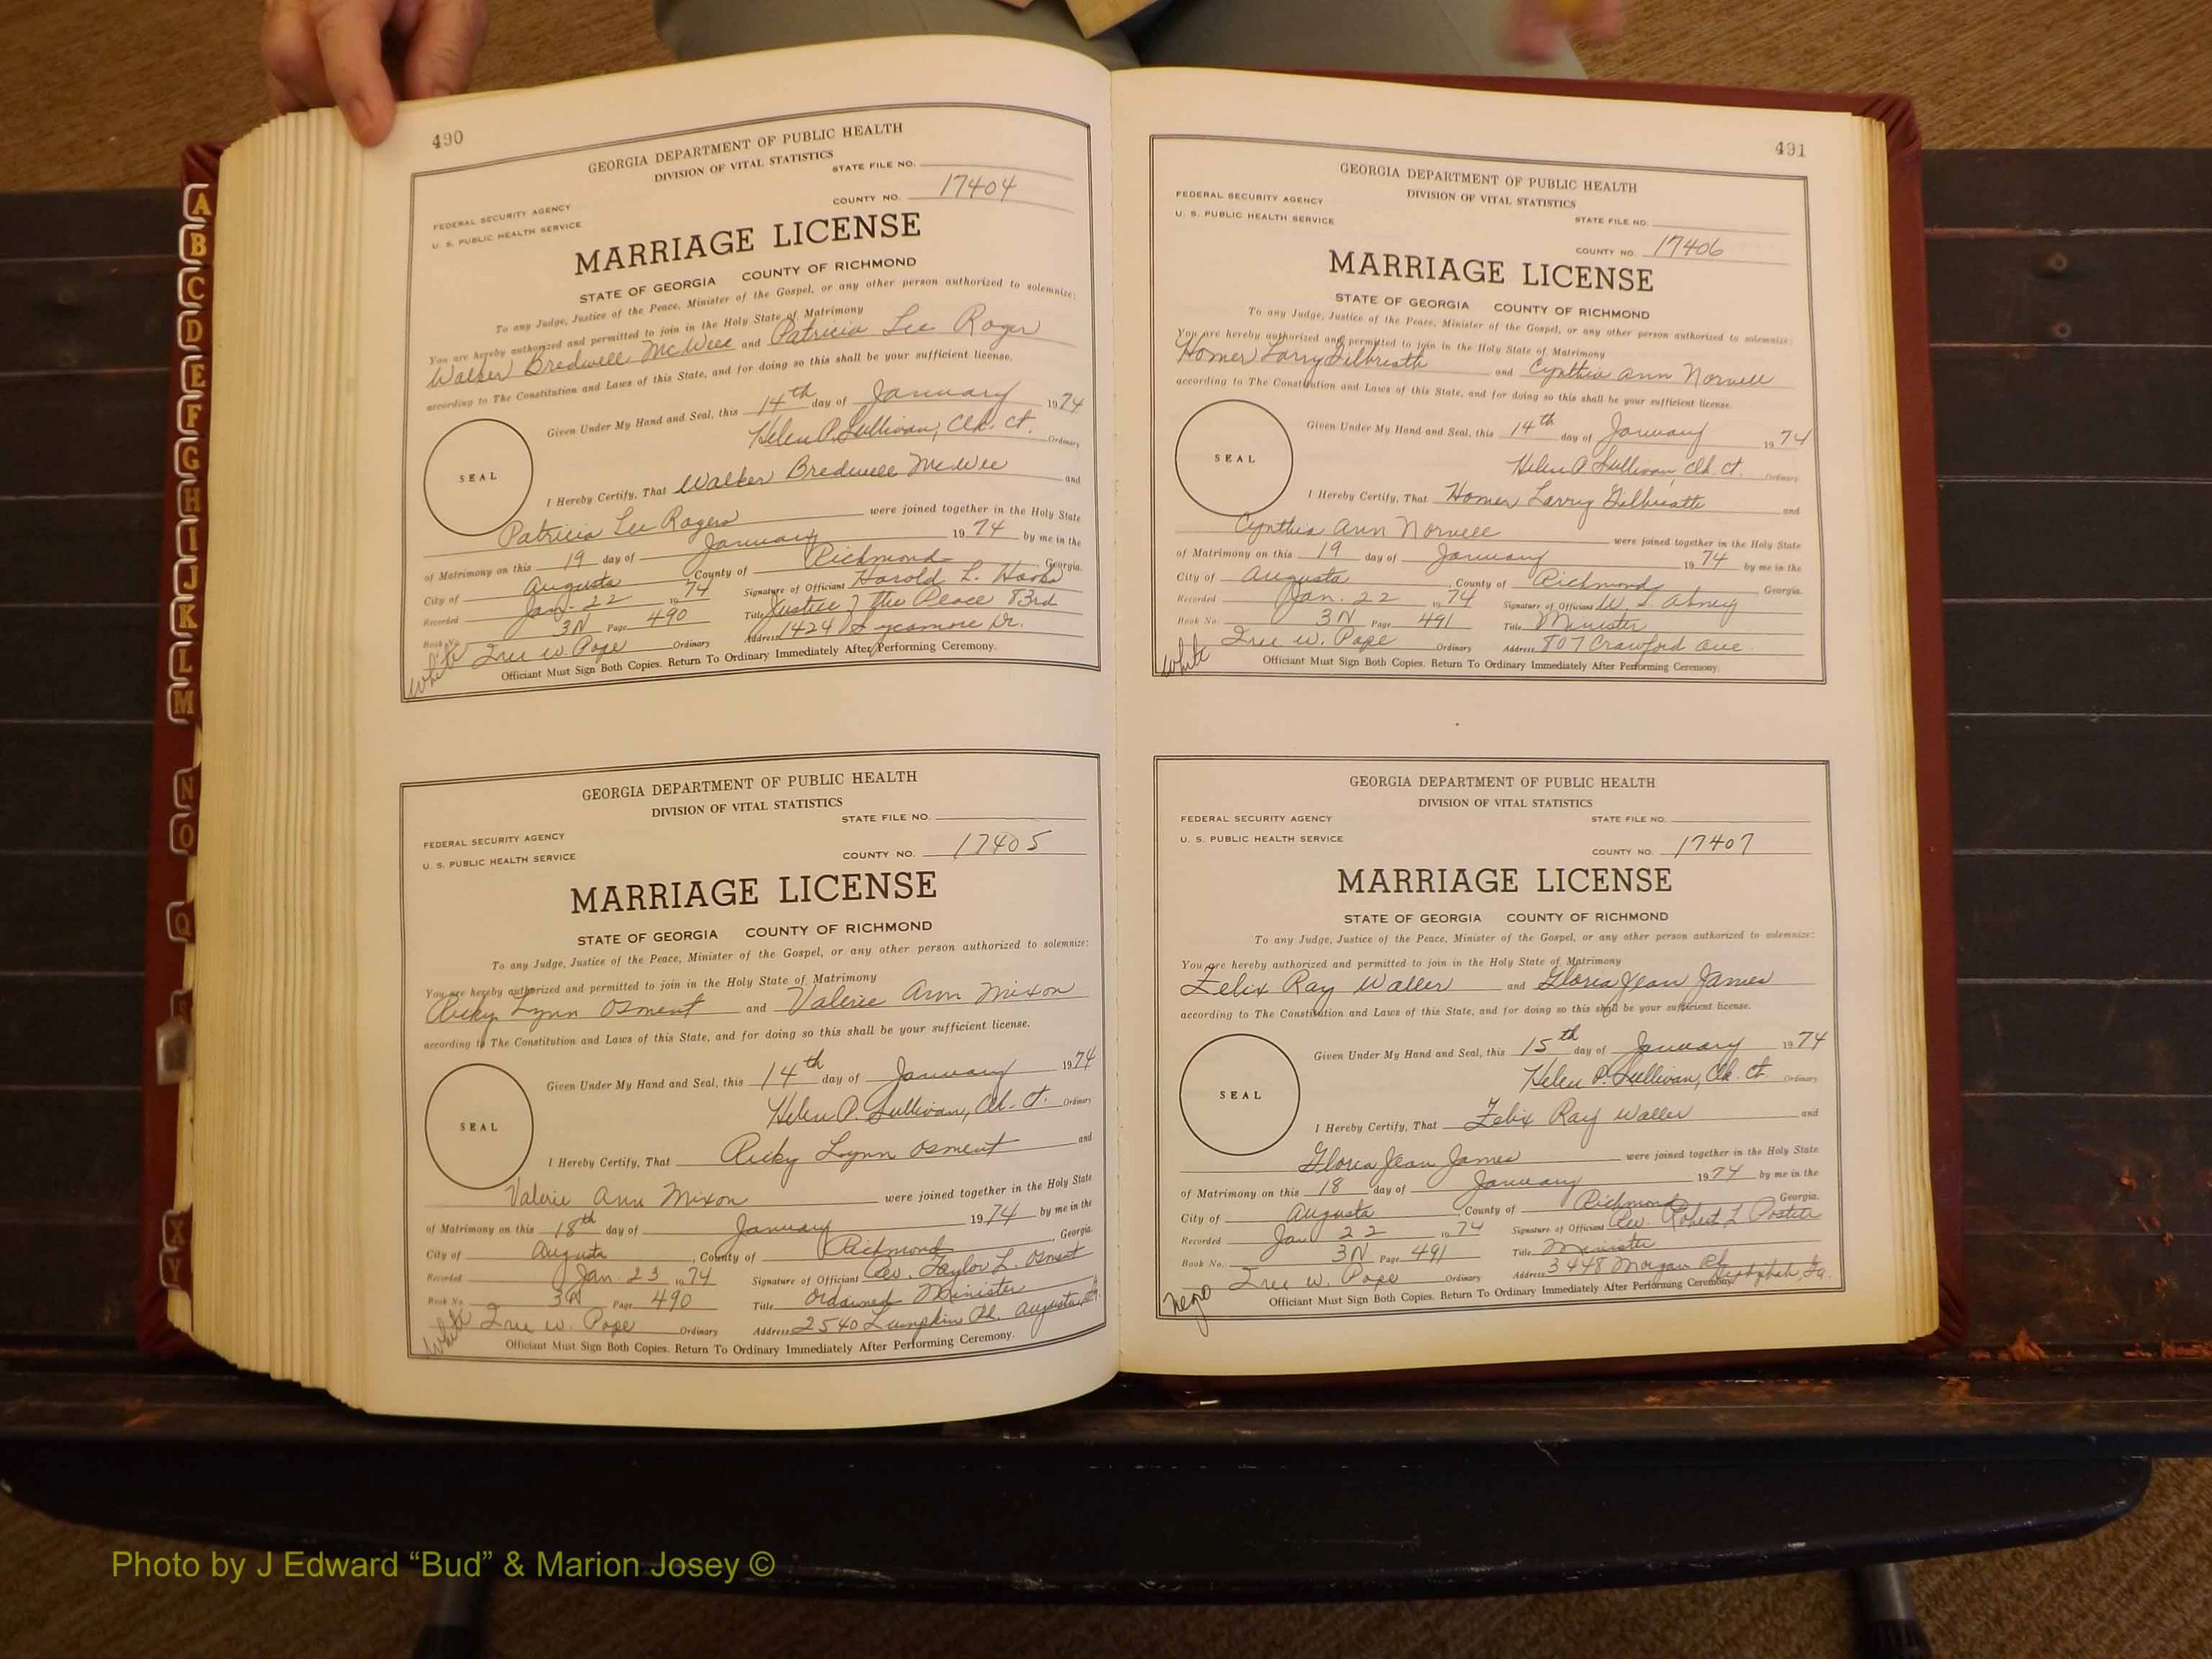 A
B
C
D
E
F
G
H
I
J
K
L
M
N
O
Q
X
Y
490
GEORGIA DEPARTMENT OF PUBLIC HEALTH
DIVISION OF VITAL STATISTICS
STATE FILE NO.
FEDERAL SECURITY AGENCY
COUNTY NO. 17404
U. S. PUBLIC HEALTH SERVICE
MARRIAGE LICENSE
STATE OF GEORGIA COUNTY OF RICHMOND
To any Judge, Justice of the Peace, Minister of the Gospel, or any other person authorized to solemnize:
You are hereby authorized and permitted to join in the Holy State of Matrimony
Walker Bredwell McWee and Patricia Lee Roger
according to The Constitution and Laws of this State, and for doing so this shall be your sufficient license.
Given Under My Hand and Seal, this 14th day of January 1974
Helen P. Sullivan, Clk. Ct. Ordinary
SEAL
I Hereby Certify, That Walker Bredwell McWee and
Patricia Lee Rogers were joined together in the Holy State
of Matrimony on this 19 day of January 1974 by me in the
City of Augusta County of Richmond, Georgia.
Recorded Jan. 22 1974 Signature of Officiant Harold L. Hooks
Book No. 3N Page 490 Title Justice of the Peace 83rd
White Iree W. Pope Ordinary Address 1424 Sycamore Dr.
Officiant Must Sign Both Copies. Return To Ordinary Immediately After Performing Ceremony.
GEORGIA DEPARTMENT OF PUBLIC HEALTH
DIVISION OF VITAL STATISTICS
STATE FILE NO.
FEDERAL SECURITY AGENCY
COUNTY NO. 17405
U. S. PUBLIC HEALTH SERVICE
MARRIAGE LICENSE
STATE OF GEORGIA COUNTY OF RICHMOND
To any Judge, Justice of the Peace, Minister of the Gospel, or any other person authorized to solemnize:
You are hereby authorized and permitted to join in the Holy State of Matrimony
Ricky Lynn Osment and Valerie Ann Mixon
according to The Constitution and Laws of this State, and for doing so this shall be your sufficient license.
Given Under My Hand and Seal, this 14th day of January 1974
Helen P. Sullivan, Clk. Ct. Ordinary
SEAL
I Hereby Certify, That Ricky Lynn Osment and
Valerie Ann Mixon were joined together in the Holy State
of Matrimony on this 18th day of January 1974 by me in the
City of Augusta, County of Richmond, Georgia.
Recorded Jan. 23 1974 Signature of Officiant Rev. Taylor L. Osment
Book No. 3N Page 490 Title Ordained Minister
White Iree W. Pope Ordinary Address 2540 Lumpkin Rd. Augusta, Ga.
Officiant Must Sign Both Copies. Return To Ordinary Immediately After Performing Ceremony.
491
GEORGIA DEPARTMENT OF PUBLIC HEALTH
DIVISION OF VITAL STATISTICS
FEDERAL SECURITY AGENCY
STATE FILE NO.
U. S. PUBLIC HEALTH SERVICE
COUNTY NO. 17406
MARRIAGE LICENSE
STATE OF GEORGIA COUNTY OF RICHMOND
To any Judge, Justice of the Peace, Minister of the Gospel, or any other person authorized to solemnize:
You are hereby authorized and permitted to join in the Holy State of Matrimony
Homer Larry Gilbreath and Cynthia Ann Norvell
according to The Constitution and Laws of this State, and for doing so this shall be your sufficient license.
Given Under My Hand and Seal, this 14th day of January 1974
Helen P. Sullivan, Clk. Ct. Ordinary
SEAL
I Hereby Certify, That Homer Larry Gilbreath and
Cynthia Ann Norvell were joined together in the Holy State
of Matrimony on this 19 day of January 1974 by me in the
City of Augusta, County of Richmond, Georgia.
Recorded Jan. 22 1974 Signature of Officiant W. L. Abney
Book No. 3N Page 491 Title Minister
White Iree W. Pope Ordinary Address 807 Crawford Ave.
Officiant Must Sign Both Copies. Return To Ordinary Immediately After Performing Ceremony.
GEORGIA DEPARTMENT OF PUBLIC HEALTH
DIVISION OF VITAL STATISTICS
FEDERAL SECURITY AGENCY
STATE FILE NO.
U. S. PUBLIC HEALTH SERVICE
COUNTY NO. 17407
MARRIAGE LICENSE
STATE OF GEORGIA COUNTY OF RICHMOND
To any Judge, Justice of the Peace, Minister of the Gospel, or any other person authorized to solemnize:
You are hereby authorized and permitted to join in the Holy State of Matrimony
Felix Ray Waller and Gloria Jean James
according to The Constitution and Laws of this State, and for doing so this shall be your sufficient license.
Given Under My Hand and Seal, this 15th day of January 1974
Helen P. Sullivan, Clk. Ct. Ordinary
SEAL
I Hereby Certify, That Felix Ray Waller and
Gloria Jean James were joined together in the Holy State
of Matrimony on this 18 day of January 1974 by me in the
City of Augusta, County of Richmond Georgia.
Recorded Jan 22 1974 Signature of Officiant Rev. Robert L.
Book No. 3N Page 491 Title Minister
Negro Iree W. Pope Ordinary Address 3448 Morgan Rd. Hephzibah, Ga.
Officiant Must Sign Both Copies. Return To Ordinary Immediately After Performing Ceremony.
Photo by J Edward “Bud” & Marion Josey ©